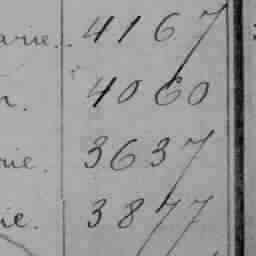 arie. 4167
n. 4060
rie. 3637
ie. 3877